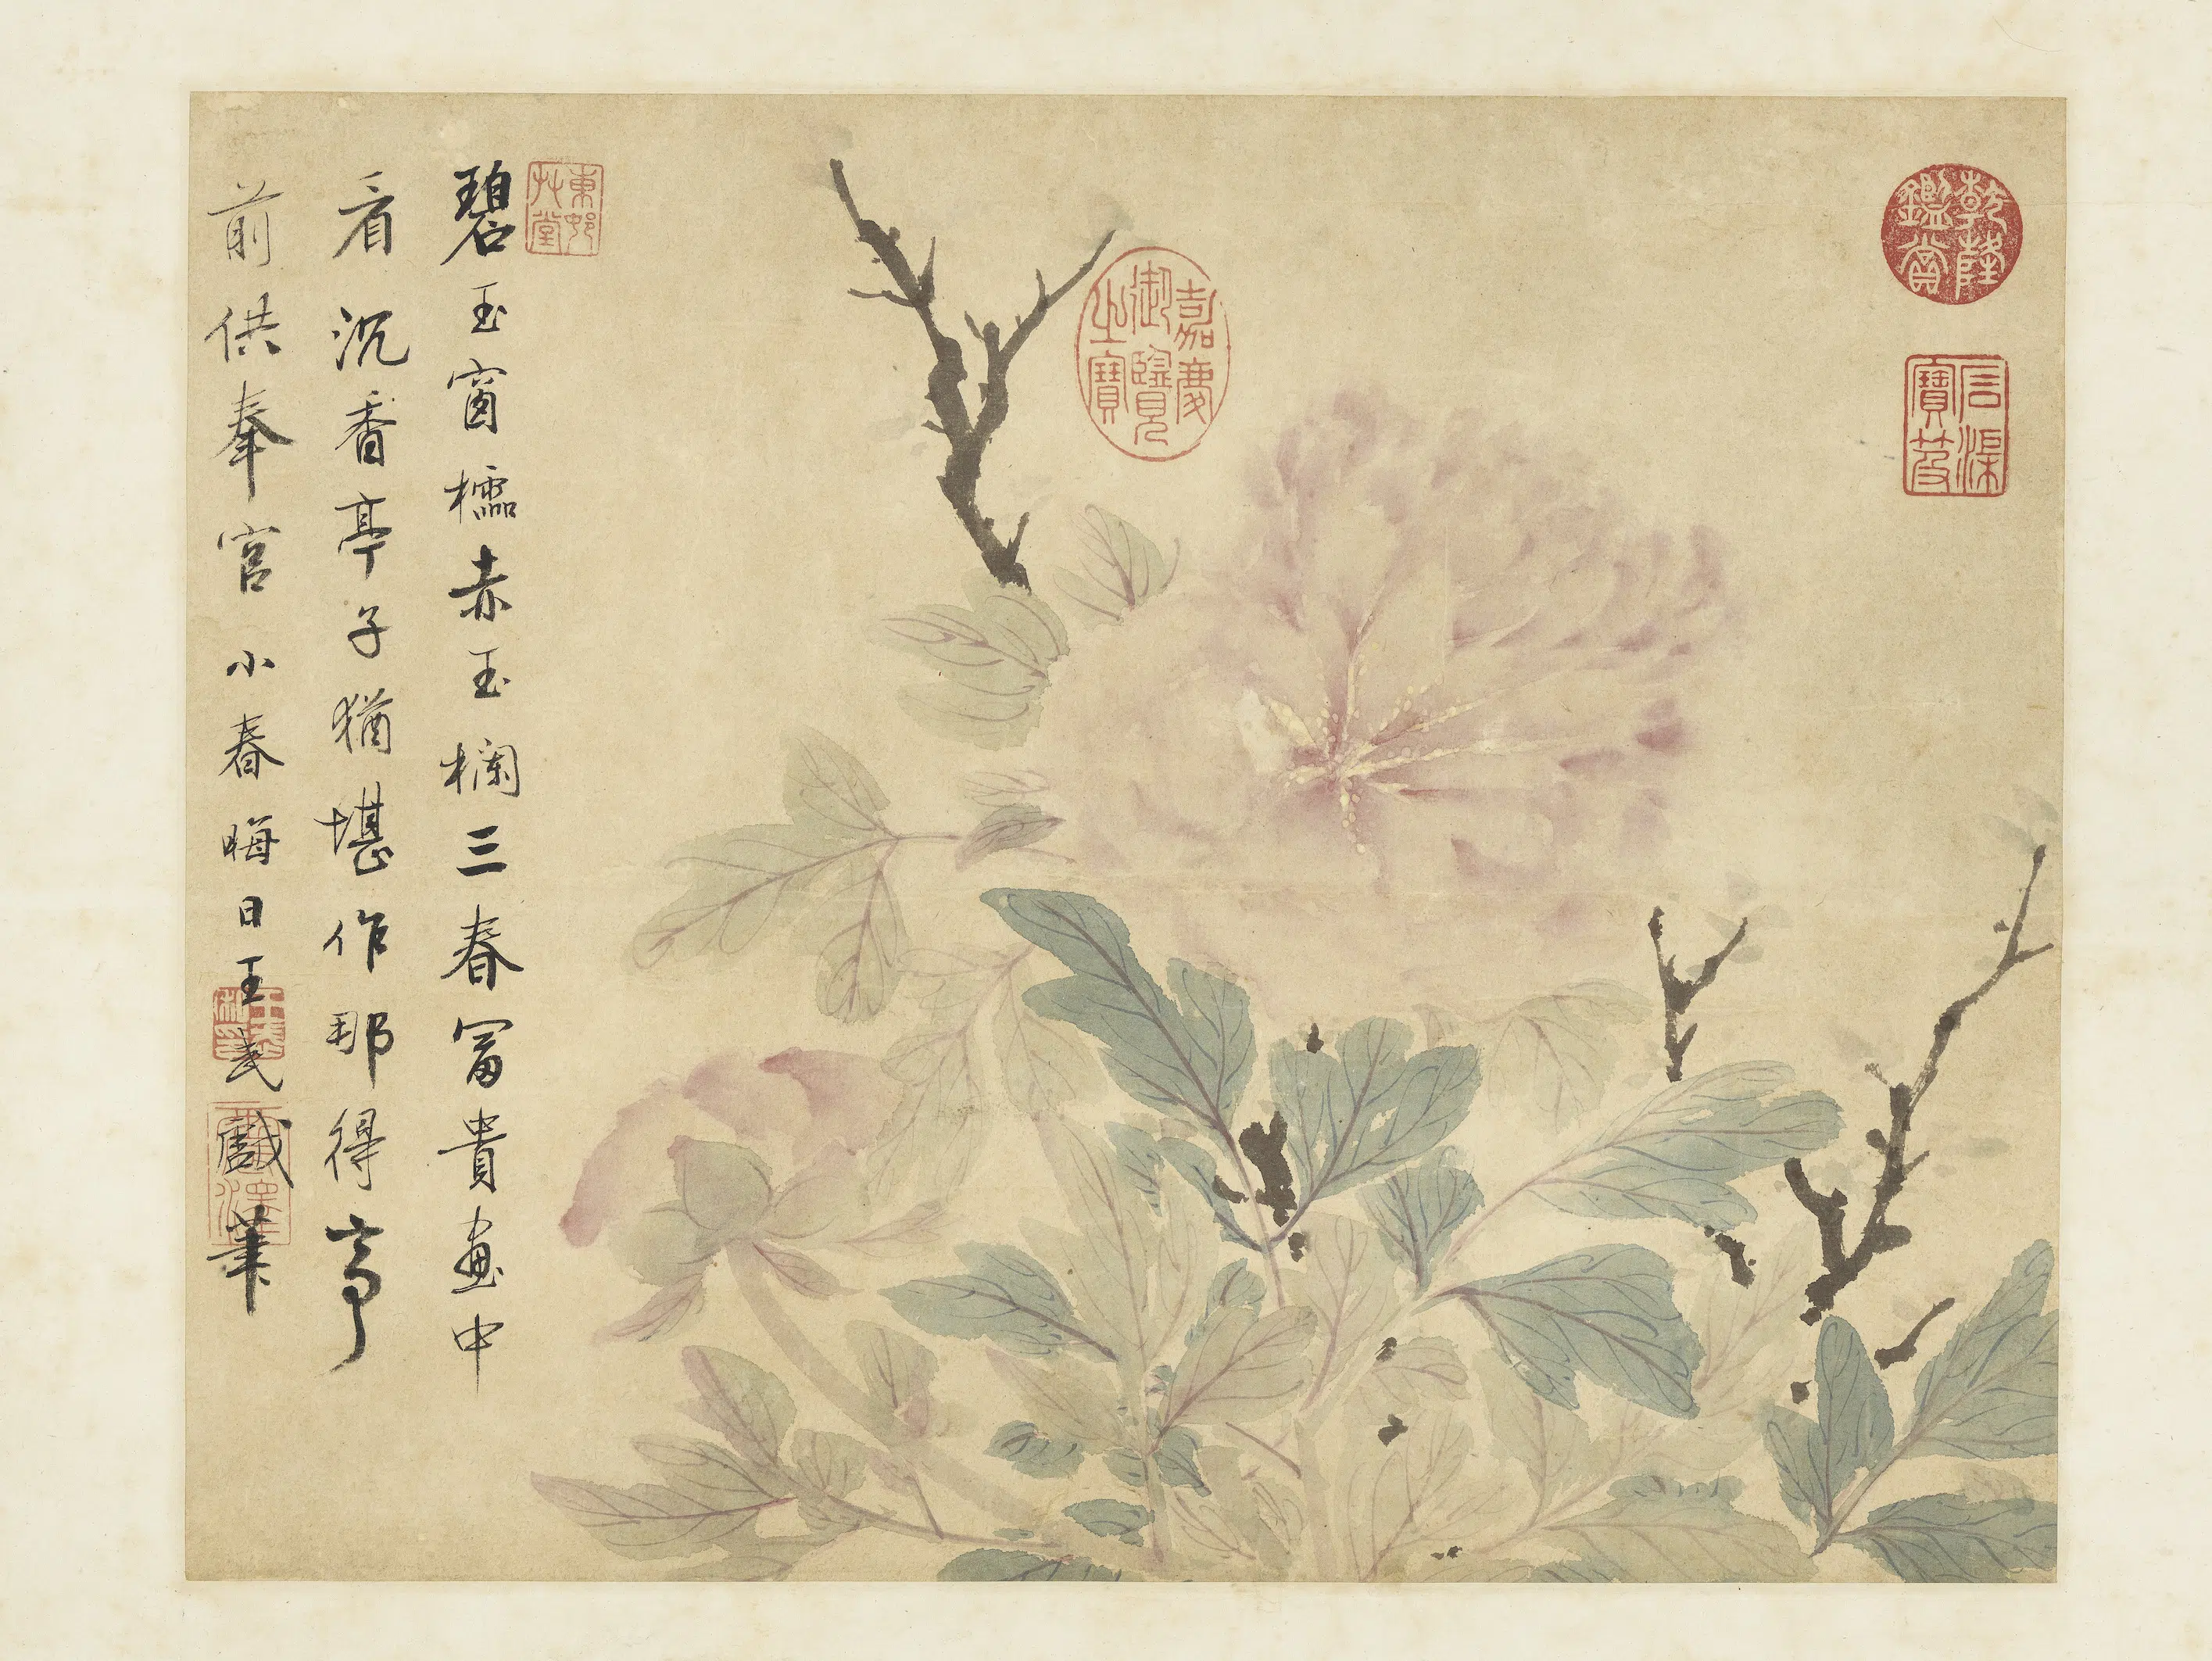 乾隆鑑賞
石渠寶笈
嘉慶御覽之寶
東邨艸堂
碧玉窗櫺赤玉欄三春冨貴畫中
看沉香亭子猶堪作那得亭
前供奉官小春晦日王武戲筆
王武私印